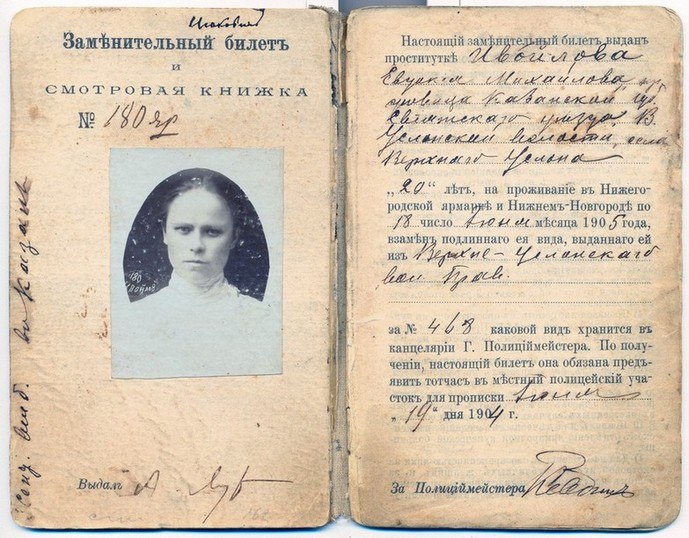 Замѣнительный билетъ
и
СМОТРОВАЯ КНИЖКА
№ 180 яр
180
Выдалъ А.
Настоящій замѣнительный билетъ выданъ
проституткѣ Ивойлова
Евдокія Михайлова, кр
Казанской губ.
Свіяжскаго уѣзда, В.
Услонской волости, села
Верхняго Услона
„20“ лѣтъ, на проживаніе въ Нижего-
родской ярмаркѣ и Нижнемъ-Новгородѣ по
18 число Іюня мѣсяца 1905 года,
взамѣнъ подлиннаго ея вида, выданнаго ей
изъ Верхне-Услонскаго
вол. Прав.
за № 468 каковой видъ хранится въ
канцеляріи Г. Полиціймейстера. По полу-
ченіи, настоящій билетъ она обязана предъ-
явить тотчасъ въ мѣстный полицейскій уча-
стокъ для прописки Іюня
„19“ дня 1904 г.
За Полиціймейстера